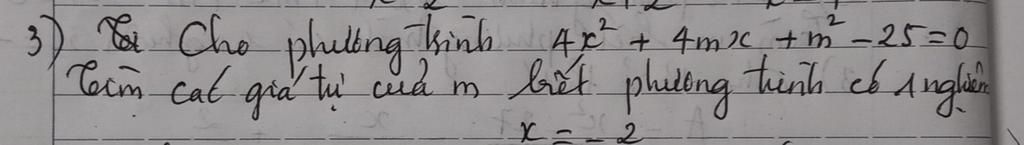 3) Cho phương trình 4x² + 4mx + m² - 25 = 0
Tìm các giá trị của m biết phương trình có 1 nghiệm
x = - 2